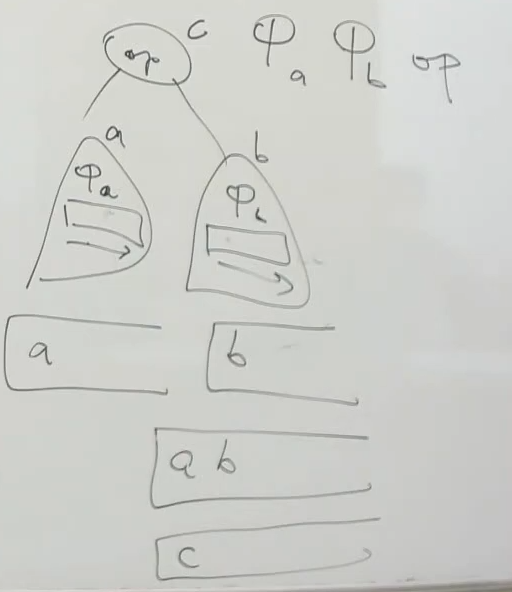 op c φa φb op
a b
φa φb
a b
a b
c